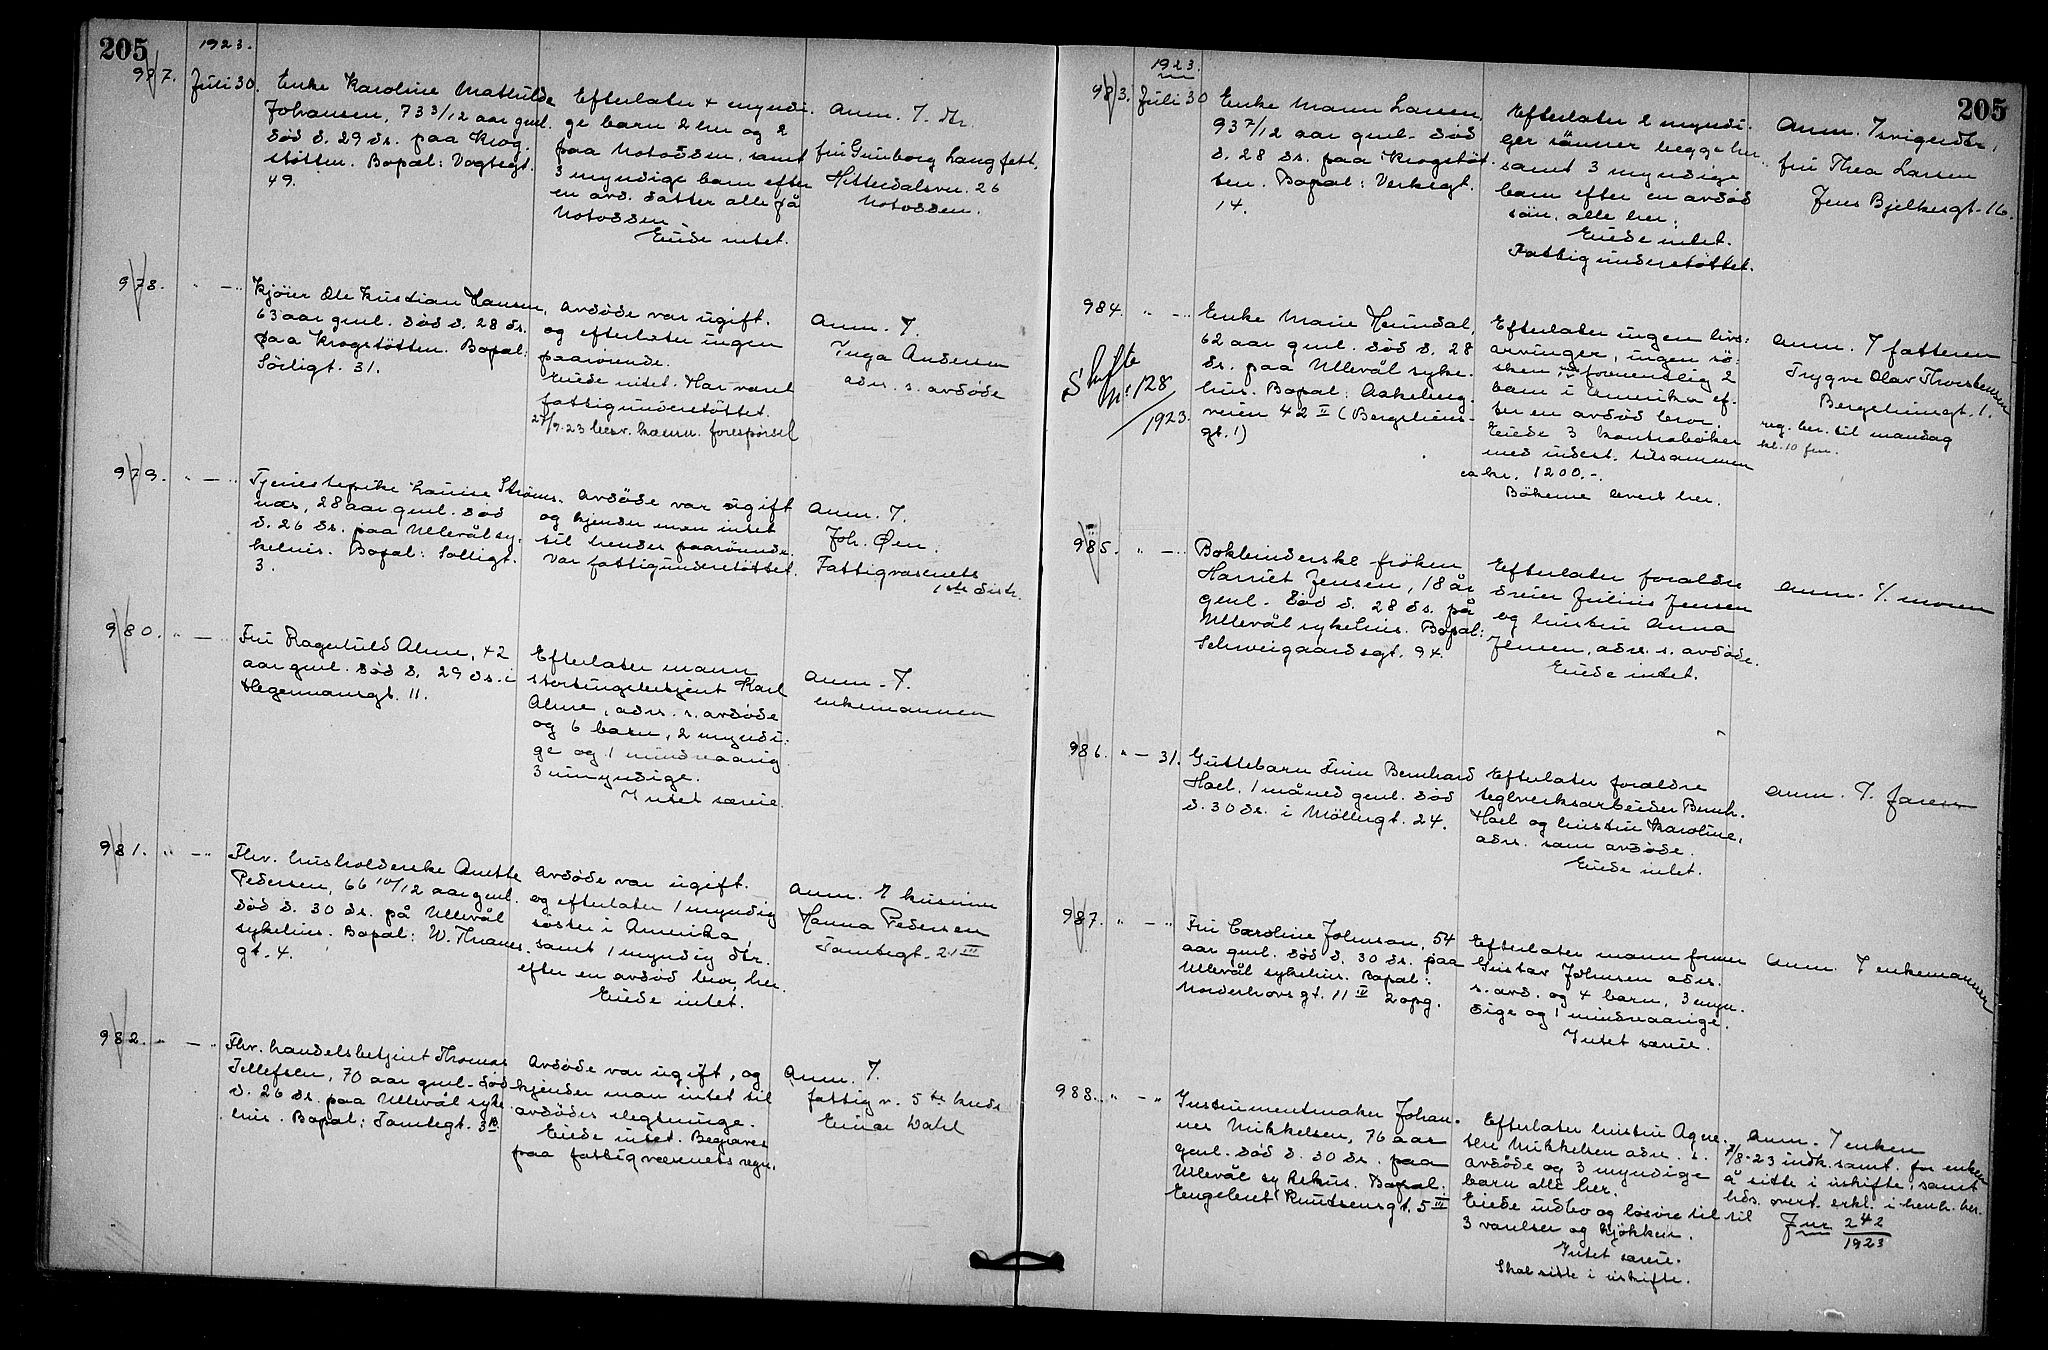 205
1923.
987.
Juli 30.
Enke Karoline Mathilde
Johansen, 73 3/12 aar gml.
død d. 29 ds. paa Krog-
støtten. Bopæl: Vogtsgt.
49.
Efterlater 4 myndi-
ge barn 2 her og 2
paa Notodden, samt
3 myndige barn efter
en avd. datter alle på
Notodden.
Eiede intet.
Anm. 7. dtr.
fru Gunborg Langfett,
Hitterdalsvn. 26
Notodden.
978.
" — "
Kjøier Ole Kristian Hansen,
63 aar gml. død d. 28 ds.
paa Krogstøtten. Bopæl:
Sörligt. 31.
Avdøde var ugift.
og efterlater ingen
paarørende.
Eiede intet. Har været
fattigunderstøttet.
27/9.23 besv. kæmn. forespørsel
Anm. 7.
Inga Andersen
adr. s. avdøde
979.
" — "
Tjenestepike Louise Strøms-
næs, 28 aar gml. død
d. 26 ds. paa Ullevål sy-
kehus. Bopæl: Solligt.
3.
Avdøde var ugift
og kjender man intet
til hendes paarørende.
Var fattigunderstøttet.
Anm. 7.
Joh. Øen.
Fattigvæsenets
1ste distr.
980.
" — "
Fru Ragnhild Alme, 42
aar gml. død d. 29 ds. i
Hegermannsgt. 11.
Efterlater mann
stortingsbetjent Karl
Alme, adr. s. avdøde
og 6 barn, 2 myndi-
ge og 1 mindreaarig
3 umyndige.
Intet særeie.
Anm. 7.
enkemannen
981.
" — "
Fhv. husholderske Anette
Pedersen, 66 10/12 aar gml.
død d. 30 ds. på Ullevål
sykehus. Bopæl: W. Thranes
gt. 4.
Avdøde var ugift.
og efterlater 1 myndig
søster i Amerika,
samt 1 myndig dtr.
efter en avdød bror, her.
Eiede intet.
Anm. 7 kusinen
Hanna Pedersen
Tomtegt. 21 III
982.
" — "
Fhv. handelsbetjent Thomas
Tellefsen, 70 aar gml. død
d. 26 ds. paa Ullevål syke-
hus. Bopæl: Tomtegt. 3B
Avdøde var ugift, og
kjender man intet til
avdødes slegtninge.
Eiede intet. Begraves
paa fattigvæsenets regn.
Anm. 7.
fattigv. 5te kreds
Einar Dahl
205
1923.
983.
Juli 30
Enke Maren Larsen,
93 7/12 aar gml. død
d. 28 ds. paa Krogstøt-
ten. Bopæl: Verksgt.
14.
Efterlater 2 myndi-
ger sönner begge her
samt 3 myndige
barn efter en avdød
sön, alle her.
Eiede intet.
Fattigunderstøttet.
Anm. 7 svigerdtr.
fru Thea Larsen
Jens Bjelkesgt. 16.
984.
" — "
Skifte
nr. 128
/1923.
Enke Marie Heimdal,
62 aar gml. død d. 28
ds. paa Ullevål syke-
hus. Bopæl: Aakeberg-
veien 42 II (Bergsliens-
gt. 1)
Efterlater ingen livs-
arvinger, ingen sö-
sken, formentlig 2
barn i Amerika ef-
ter en avdød bror.
Eiede 3 kontrabøker
med indest. tilsammen
ca kr. 1200.-.
Bökerne levert her.
Anm. 7 fætteren
Trygve Olav Thorstensen
Bergsliensgt. 1.
reg. ber. til mandag
kl. 10 fm.
985.
" — "
Bokbinderske frøken
Harriet Jensen, 18 år
gml. død d. 28 ds. på
Ullevål sykehus. Bopæl:
Schweigaardsgt. 94.
Efterlater foreldre
dreier Julius Jensen
og hustru Anna
Jensen, adr. s. avdøde.
Eiede intet.
Anm. 7. moren
986.
" — 31.
Guttebarn Finn Bernhard
Hoel. 1 måned gml. død
d. 30 ds. i Möllergt. 24.
Efterlater forældre
teglverksarbeider Bernh.
Hoel og hustru Karoline,
adr. som avdøde.
Eiede intet.
Anm. 7. faren
987.
" — "
Fru Caroline Johnsen, 54
aar gml. død d. 30 ds. paa
Ullevål sykehus. Bopæl:
Norderhovsgt. 11 IV 2 opg.
Efterlater mann former
Gustav Johnsen adr.
s. avd. og 4 barn, 3 myn-
dige og 1 mindreaarige.
Intet særeie.
Anm. 7 enkemannen
988.
" — "
Instrumentmaker Johan-
nes Mikkelsen, 76 aar
gml. død d. 30 ds. paa
Ullevål sykehus. Bopæl:
Engebret Knudsensgt. 5 III
Efterlater hustru Agne-
te Mikkelsen adr. s.
avdøde og 3 myndige
barn alle her.
Eiede indbo og løsøre til
3 værelser og kjøkken.
Intet særeie.
Skal sitte i uskifte.
Anm. 7 enken
7/8-23 indk. samt. for enken
å sitte i uskifte, samt
til
Jnr 242
1923